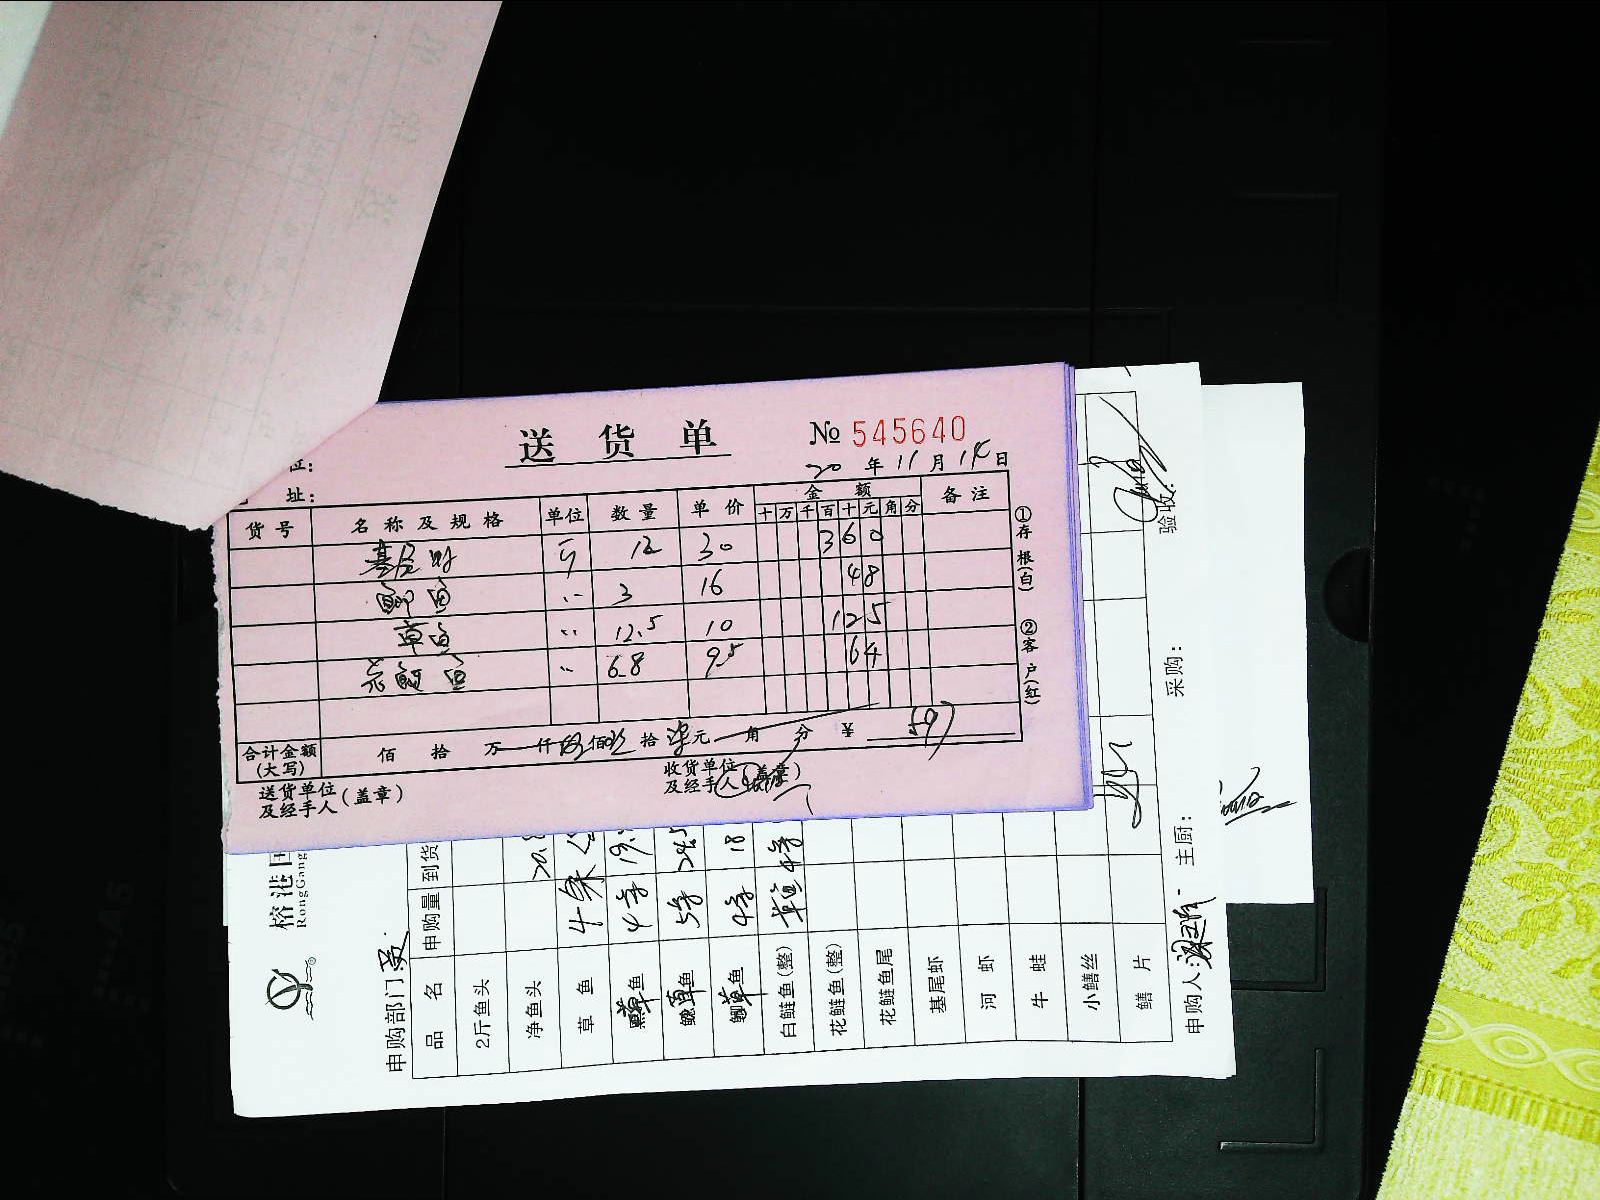 送货单 № 545640
位：
20年11月14日
址：
货号 名称及规格 单位 数量 单价 金额 备注
十 万 千 百 十 元 角 分
基尾虾 斤 12 30 360
鲫鱼 〃 3 16 48
草鱼 〃 12.5 10 125
花鲢鱼 〃 6.8 9.5 64
合计金额(大写) 佰 拾 万 仟 伍佰玖拾柒元 角 分 ¥ 597
送货单位及经手人(盖章) 收货单位及经手人(盖章)
①存根(白) ②客户(红)
榕港国
RongGang
申购部门：
品名 申购量 到货
2斤鱼头
净鱼头 20.
草鱼 4条
草鱼 4条 19.
草鱼 5条 24.5
草鱼 4条 18
白鲢鱼(整) 草鱼 4条
花鲢鱼(整)
花鲢鱼尾
基尾虾
河虾
牛蛙
小鳝丝
鳝片
申购人： 主厨： 采购： 验收：